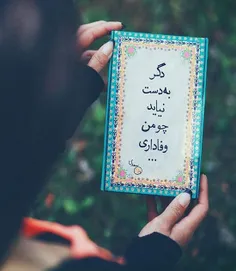 دگر
به‌دست
نیاید
چو من
وفاداری
...